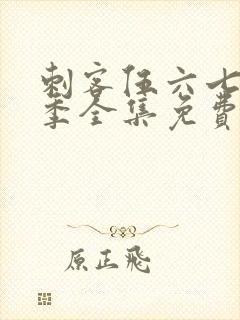 刺客伍六七
季全集免费
原正飛